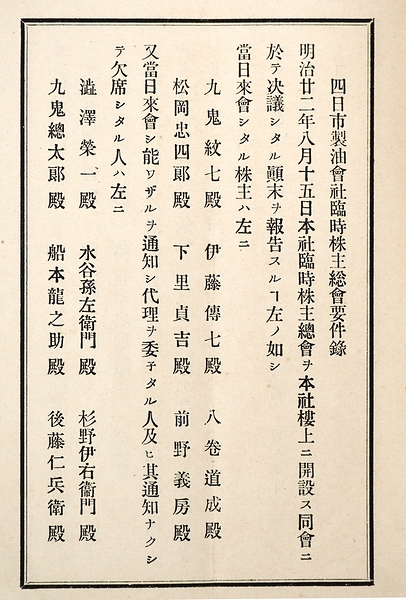 四日市製油會社臨時株主総會要件錄
明治廿二年八月十五日本社臨時株主總會ヲ本社樓上ニ開設ス同會ニ
於テ决議シタル顚末ヲ報告スルヿ左ノ如シ
當日來會シタル株主ハ左ニ
九鬼紋七殿 伊藤傳七殿 八卷道成殿
松岡忠四郞殿 下里貞吉殿 前野義房殿
又當日來會シ能ワザルヲ通知シ代理ヲ委子タル人及ヒ其通知ナクシ
テ欠席シタル人ハ左ニ
澁澤榮一殿 水谷孫左衞門殿 杉野伊右衞門殿
九鬼總太郞殿 船本龍之助殿 後藤仁兵衞殿